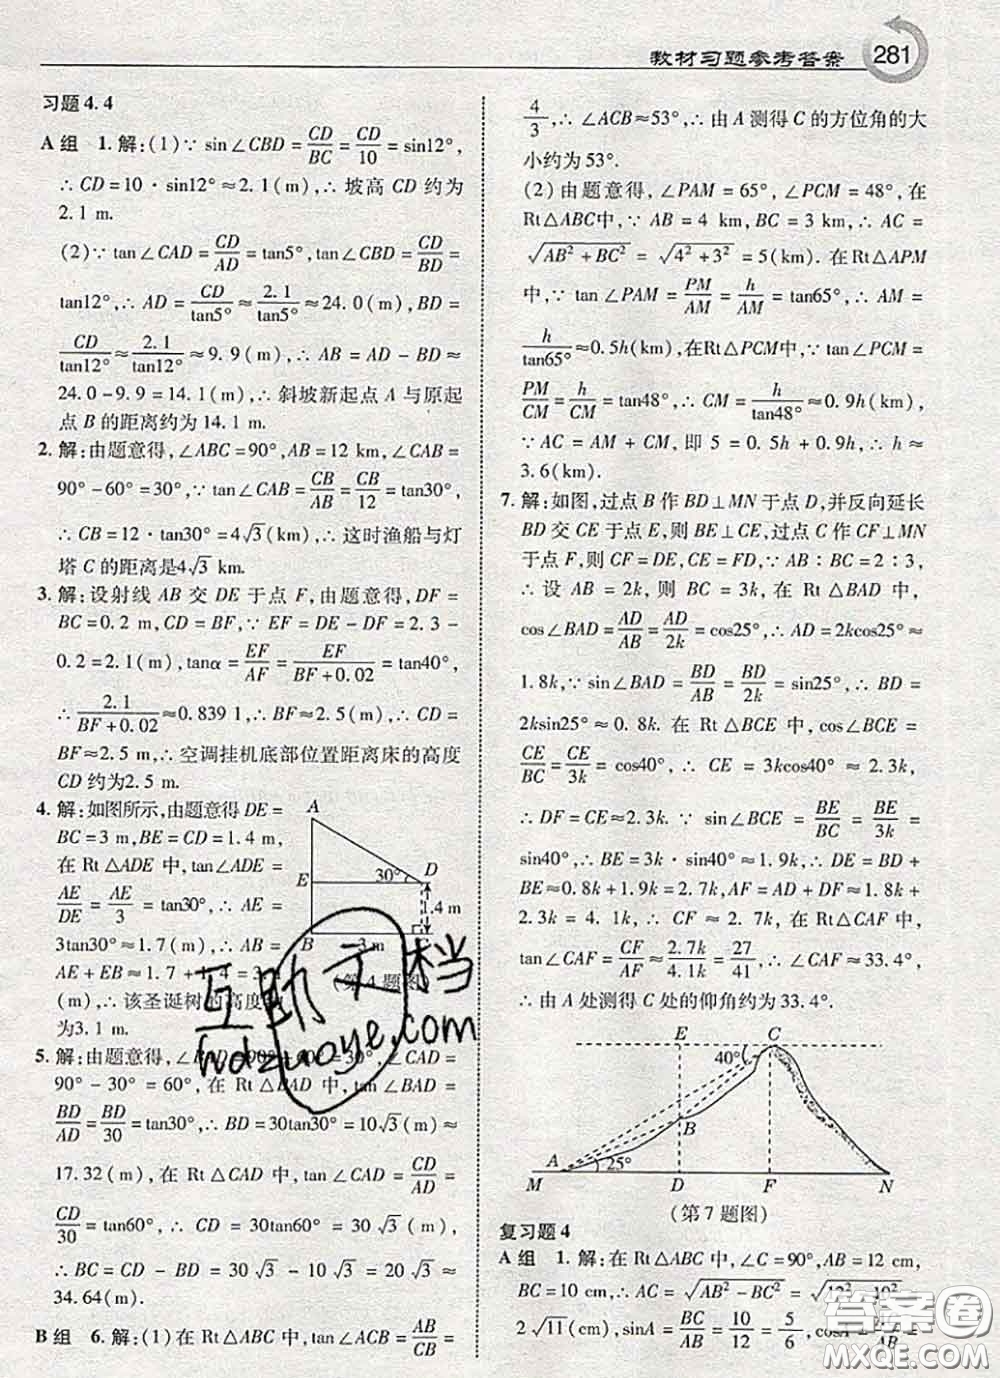 教材习题参考答案 281
习题4.4
A组 1.解:(1)∵ sin∠CBD = CD/BC = CD/10 = sin12°,
∴ CD = 10·sin12° ≈ 2.1(m),∴ 坡高 CD 约为
2.1 m.
(2)∵ tan∠CAD = CD/AD = tan5°, tan∠CBD = CD/BD =
tan12°,∴ AD = CD/tan5° ≈ 2.1/tan5° ≈ 24.0(m), BD =
CD/tan12° ≈ 2.1/tan12° ≈ 9.9(m).∴ AB = AD - BD ≈
24.0 - 9.9 = 14.1(m).∴ 斜坡新起点 A 与原起
点 B 的距离约为 14.1 m.
2. 解:由题意得,∠ABC = 90°, AB = 12 km,∠CAB =
90° - 60° = 30°,∵ tan∠CAB = CB/AB = CB/12 = tan30°,
∴ CB = 12·tan30° = 4√3(km).∴ 这时渔船与灯
塔 C 的距离是4√3 km.
3. 解:设射线 AB 交 DE 于点 F,由题意得, DF =
BC = 0.2 m, CD = BF,∵ EF = DE - DF = 2.3 -
0.2 = 2.1(m), tanα = EF/AF = EF/(BF + 0.02) = tan40°,
∴ 2.1/(BF + 0.02) ≈ 0.839 1,∴ BF ≈ 2.5(m),∴ CD =
BF ≈ 2.5 m,∴ 空调挂机底部位置距离床的高度
CD 约为2.5 m.
4. 解:如图所示,由题意得 DE =
BC = 3 m, BE = CD = 1.4 m,
在 Rt△ADE 中, tan∠ADE =
AE/DE = AE/3 = tan30°,∴ AE =
3tan30° ≈ 1.7(m),∴ AB =
AE + EB ≈ 1.7 + 1.4 = 3.1
(m),∴ 该圣诞树的高度约
为3.1 m.
A
E 30° D
1.4 m
B 3 m C
(第4题图)
5. 解:由题意得,∠BAD = 90° - 60° = 30°,∠CAD =
90° - 30° = 60°,在 Rt△ABD 中, tan∠BAD =
BD/AD = BD/30 = tan30°,∴ BD = 30tan30° = 10√3(m) ≈
17.32(m),在 Rt△CAD 中, tan∠CAD = CD/AD =
CD/30 = tan60°,∴ CD = 30tan60° = 30√3(m),
∴ BC = CD - BD = 30√3 - 10√3 = 20√3 ≈
34.64(m).
B组 6. 解:(1)在 Rt△ABC 中, tan∠ACB = AB/CB =
4/3,∴ ∠ACB ≈ 53°,∴ 由 A 测得 C 的方位角的大
小约为 53°.
(2)由题意得,∠PAM = 65°,∠PCM = 48°,在
Rt△ABC中,∵ AB = 4 km, BC = 3 km,∴ AC =
√(AB² + BC²) = √(4² + 3²) = 5(km).在Rt△APM
中,∵ tan∠PAM = PM/AM = h/AM = tan65°,∴ AM =
h/tan65° ≈ 0.5h(km),在Rt△PCM中,∵ tan∠PCM =
PM/CM = h/CM = tan48°,∴ CM = h/tan48° ≈ 0.9h(km).
∵ AC = AM + CM,即 5 = 0.5h + 0.9h,∴ h ≈
3.6(km).
7. 解:如图,过点 B 作 BD⊥MN 于点 D,并反向延长
BD 交 CE 于点 E,则 BE⊥CE,过点 C 作 CF⊥MN
于点 F,则 CF = DE, CE = FD,∵ AB∶BC = 2∶3,
∴ 设 AB = 2k,则 BC = 3k,在 Rt△BAD 中,
cos∠BAD = AD/AB = AD/2k = cos25°,∴ AD = 2kcos25° ≈
1.8k,∵ sin∠BAD = BD/AB = BD/2k = sin25°,∴ BD =
2ksin25° ≈ 0.8k.在 Rt△BCE 中, cos∠BCE =
CE/BC = CE/3k = cos40°,∴ CE = 3kcos40° ≈ 2.3k,
∴ DF = CE ≈ 2.3k.∵ sin∠BCE = BE/BC = BE/3k =
sin40°,∴ BE = 3k·sin40° ≈ 1.9k,∴ DE = BD +
BE ≈ 0.8k + 1.9k = 2.7k, AF = AD + DF ≈ 1.8k +
2.3k = 4.1k,∴ CF = DE ≈ 2.7k,在 Rt△CAF 中,
tan∠CAF = CF/AF ≈ 2.7k/4.1k = 27/41,∴ ∠CAF ≈ 33.4°,
∴ 由 A 处测得 C 处的仰角约为 33.4°.
E C
40°
B
A 25°
M D F N
(第7题图)
复习题4
A组 1. 解:在 Rt△ABC 中,∠C = 90°, AB = 12 cm,
BC = 10 cm,∴ AC = √(AB² - BC²) = √(12² - 10²) =
2√11(cm), sinA = BC/AB = 10/12 = 5/6, cosA =
互助文档
hdzuoye.com
答案圈
MXQE.COM